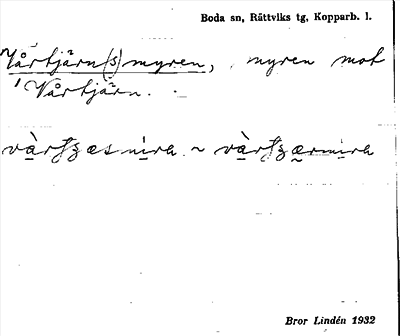 Boda sn, Rättviks tg, Kopparb. l.
Vårtjärn(s)myren, myren mot
Vårtjärn.
Bror Lindén 1932